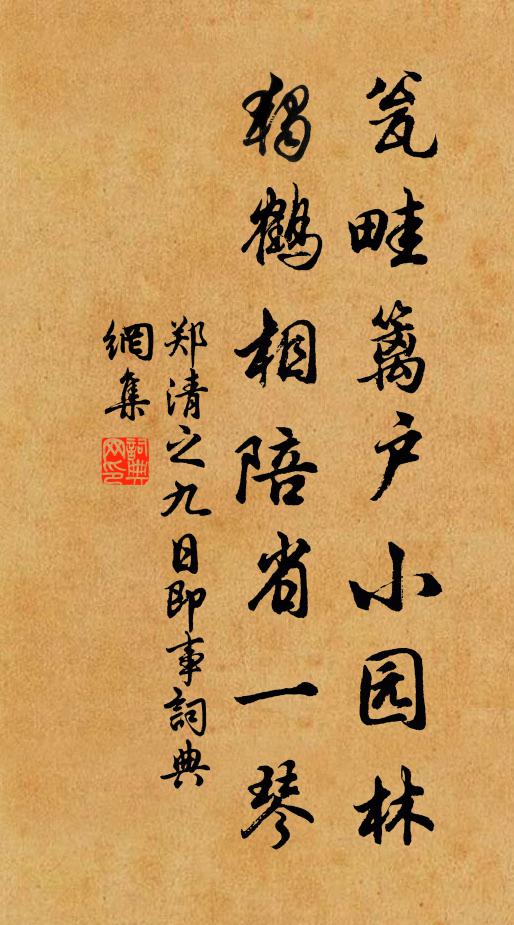 瓮畦篱户小园林
独鹤相陪省一琴
郑清之九日即事詞典
網集
詞典
网印